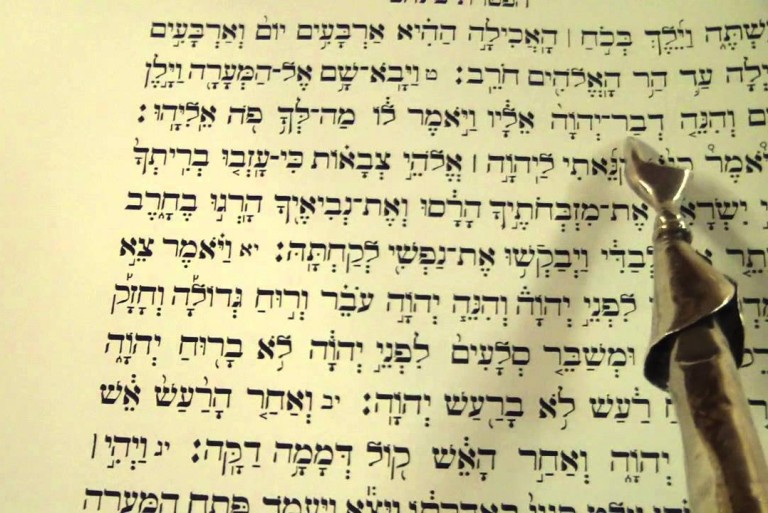 וַיֵּ֜לֶךְ בְּכֹ֣חַ | הָאֲכִילָ֣ה הַהִ֗יא אַרְבָּעִ֥ים יוֹם֙ וְאַרְבָּעִ֣ים
עַ֛ד הַ֥ר הָאֱלֹהִ֖ים חֹרֵֽב: ט וַיָּבֹא־שָׁ֥ם אֶל־הַמְּעָרָ֖ה וַיָּ֣לֶן
וְהִנֵּ֤ה דְבַר־יְהוָה֙ אֵלָ֔יו וַיֹּ֣אמֶר ל֔וֹ מַה־לְּךָ֥ פֹ֖ה אֵלִיָּֽהוּ:
לַיהוָ֣ה | אֱלֹהֵ֣י צְבָא֗וֹת כִּי־עָזְב֤וּ בְרִֽיתְךָ֙
אֶת־מִזְבְּחֹתֶ֣יךָ הָרָ֔סוּ וְאֶת־נְבִיאֶ֖יךָ הָרְג֣וּ בֶחָ֑רֶב
וַיְבַקְשׁ֥וּ אֶת־נַפְשִׁ֖י לְקַחְתָּֽהּ: יא וַיֹּ֗אמֶר צֵ֣א
לִפְנֵ֣י יְהוָה֒ וְהִנֵּ֧ה יְהוָ֣ה עֹבֵ֗ר וְר֣וּחַ גְּדוֹלָ֡ה וְחָזָ֞ק
וּמְשַׁבֵּ֤ר סְלָעִים֙ לִפְנֵ֣י יְהוָ֔ה לֹ֥א בָר֖וּחַ יְהוָ֑ה
רַ֔עַשׁ לֹ֥א בָרַ֖עַשׁ יְהוָֽה: יב וְאַחַ֤ר הָרַ֙עַשׁ֙ אֵ֔שׁ
יְהוָ֑ה וְאַחַ֣ר הָאֵ֔שׁ ק֖וֹל דְּמָמָ֥ה דַקָּֽה: יג וַיְהִ֣י |
וַיֵּצֵ֕א וַֽיַּעֲמֹ֖ד פֶּ֣תַח הַמְּעָרָ֑ה